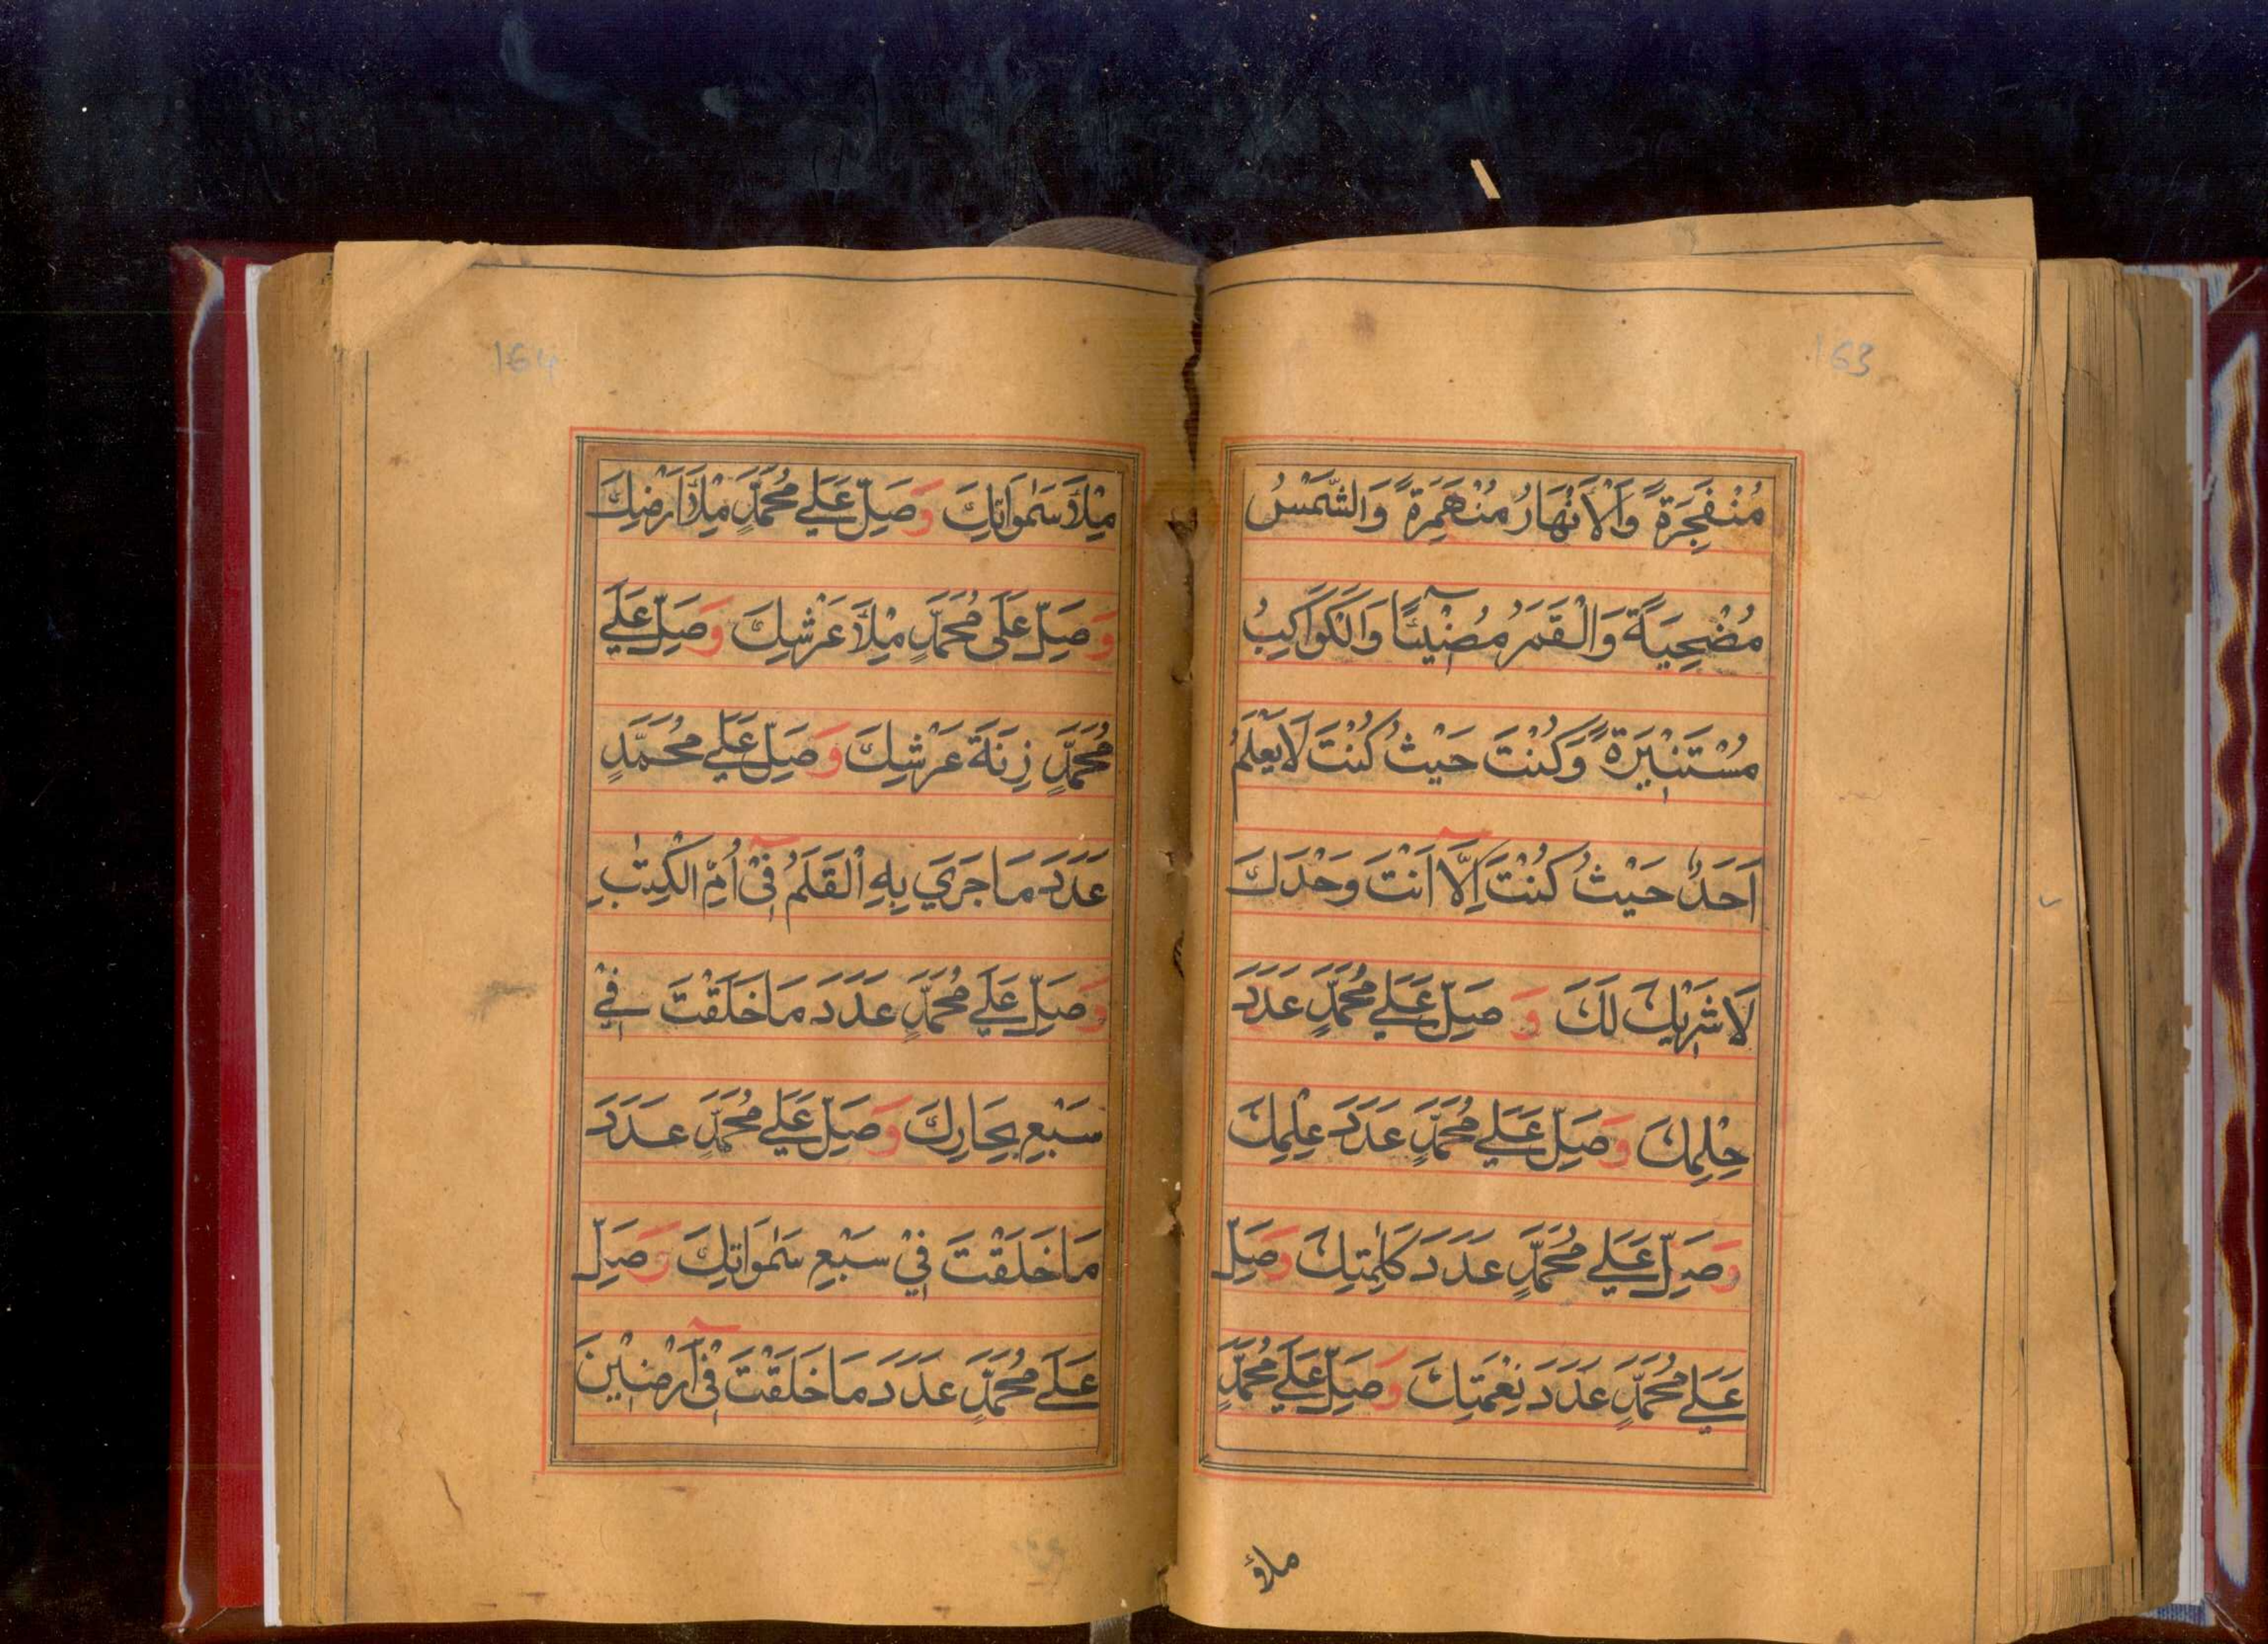 163
مُنْفَجِرَةً وَالْاَنْهَارُ مُنْهَمِرَةً وَالشَّمْسُ
مُضْحِيَةً وَالْقَمَرُ مُضِيْئًا وَالْكَوَاكِبُ
مُسْتَنِيْرَةً وَكُنْتَ حَيْثُ كُنْتَ لَا يَعْلَمُ
اَحَدٌ حَيْثُ كُنْتَ اِلَّا اَنْتَ وَحْدَكَ
لَا شَرِيْكَ لَكَ وَ صَلِّ عَلٰے مُحَمَّدٍ عَدَدَ
حِلْمِكَ وَصَلِّ عَلٰے مُحَمَّدٍ عَدَدَ عِلْمِكَ
وَصَلِّ عَلٰے مُحَمَّدٍ عَدَدَ كَلِمٰتِكَ وَصَلِّ
عَلٰے مُحَمَّدٍ عَدَدَ نِعْمَتِكَ وَصَلِّ عَلٰے مُحَمَّدٍ
ملأ
164
مِلْأَ سَمٰوَاتِكَ وَصَلِّ عَلٰے مُحَمَّدٍ مِلْأَ اَرْضِكَ
وَصَلِّ عَلٰى مُحَمَّدٍ مِلْأَ عَرْشِكَ وَصَلِّ عَلٰے
مُحَمَّدٍ زِنَةَ عَرْشِكَ وَصَلِّ عَلٰے مُحَمَّدٍ
عَدَدَ مَا جَرَي بِهِ الْقَلَمُ فِيْ اُمِّ الْكِتٰبِ
وَصَلِّ عَلٰے مُحَمَّدٍ عَدَدَ مَا خَلَقْتَ فِيْ
سَبْعِ بِحَارِكَ وَصَلِّ عَلٰے مُحَمَّدٍ عَدَدَ
مَا خَلَقْتَ فِيْ سَبْعِ سَمٰوَاتِكَ وَصَلِّ
عَلٰے مُحَمَّدٍ عَدَدَ مَا خَلَقْتَ فِيْ اَرَضِيْنَ